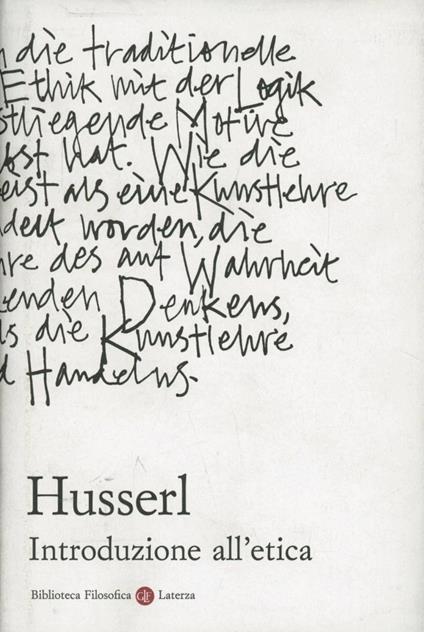 die traditionelle
Ethik mit der Logik
liegende Motive
hat. Wie die
ist als eine Kunstlehre
delt worden, die
re des auf Wahrheit
enden Denkens,
s die Kunstlehre
d Handelns.
Husserl
Introduzione all'etica
Biblioteca Filosofica GLF Laterza